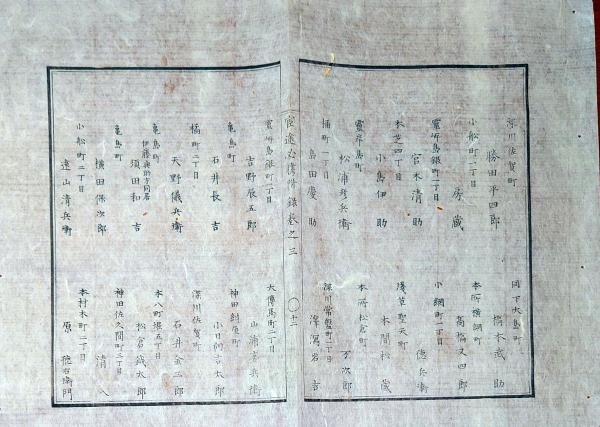 深川佐賀町
勝田平四郎
小船町一丁目
房蔵
霊岸島銀町一丁目
官本清助
本芝四丁目
小島伊助
霊岸島町
松浦彦兵衛
桶町一丁目
島田慶助
同下大島町
橋本武助
本所横網町
高橋又四郎
小網町一丁目
徳兵衛
浅草聖天町
本間松蔵
本所松倉町
万次郎
深川常盤町二丁目
澤寫岩吉
官途必携附録巻之三
〇十二
霊岸島銀町二丁目
吉野辰五郎
亀島町
石井長吉
橘町二丁目
天野儀兵衛
亀島町
伊藤与助方同居
須田和吉
亀島町
横田保次郎
小船町二丁目
遠山清兵衛
大傳馬町二丁目
山浦彦兵衛
神田創屋町
小日向吉太郎
深川佐賀町
石井金三郎
本八町堀五丁目
松倉鉞太郎
神田佐久間町二丁目
清八
本村木町二丁目
原徳右衛門